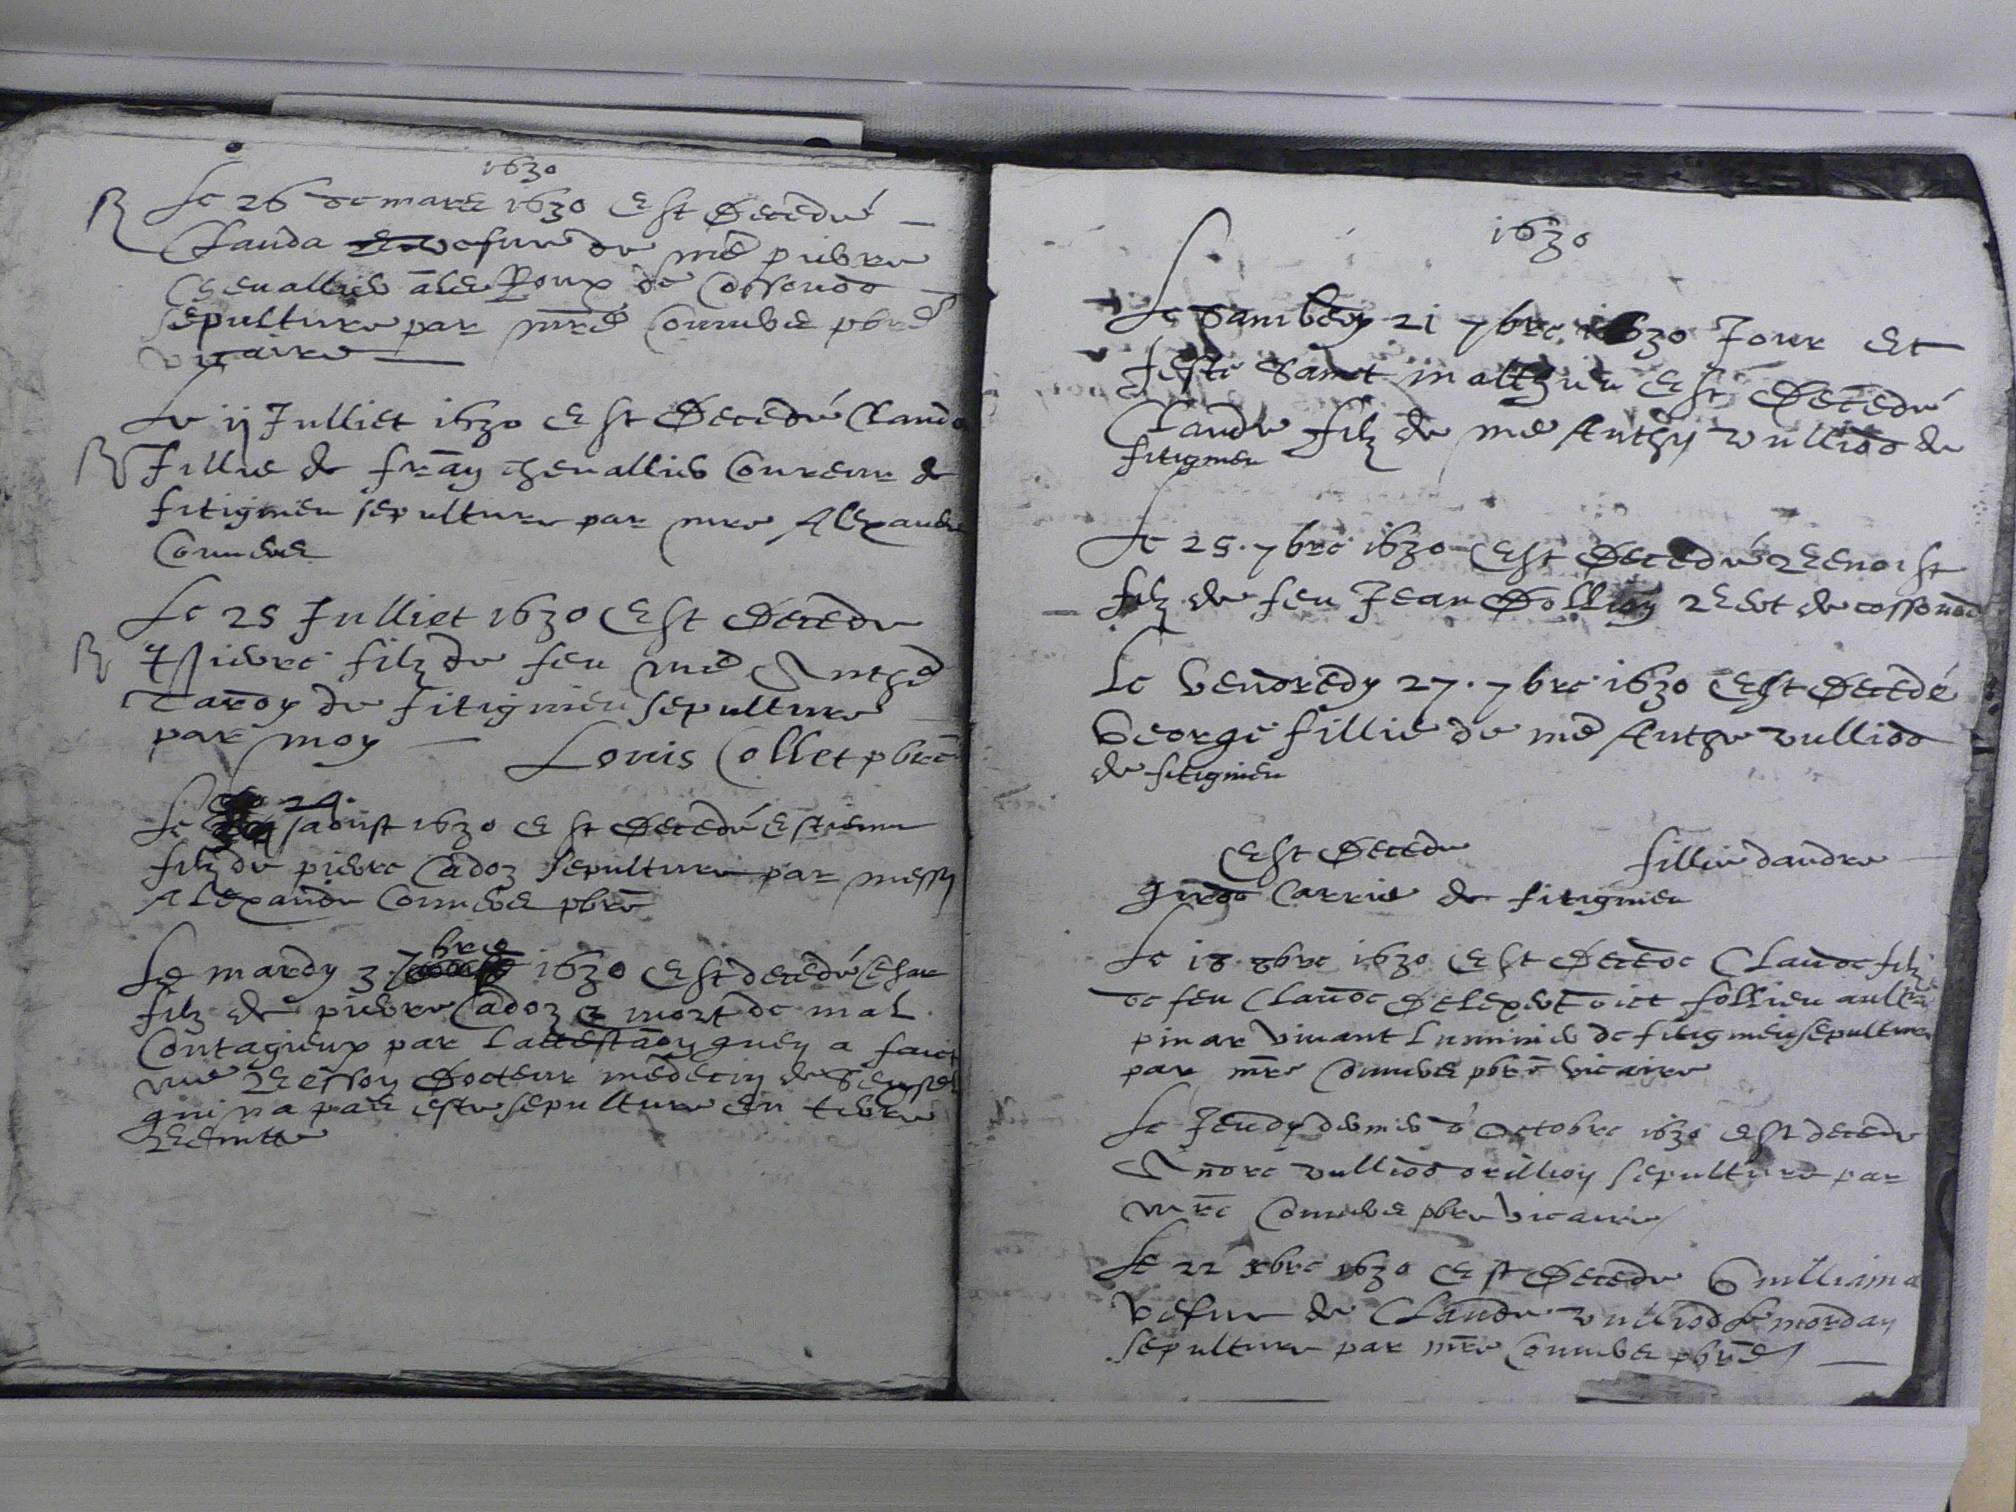 1630
Le 26 de mars 1630 Est Decedé
Clauda vefve de me pierre
Chevallier Roux de Cossonod
sepulture par mre Convers pbre
vicaire
Le ij Julliet 1630 Est Decedé Clauda
Fillie de chevallier Coureur de
fitignieu sepulture par mre Alexandre
Convers
Le 25 Julliet 1630 Est Decede
Pierre filz de feu me Anthe
de fitignieu sepulture
par moy
Louis Collet pbre
Le 24 aoust 1630 Est Decedé Estienne
filz de pierre Cadoz sepulture par messre
Alexandre Convers pbre
Le mardy 3 7bre 1630 Est decedé Cesar
filz de pierre Cadoz mort de mal
Contagieux par Lattestaon quen a faict
me Docteur medecin de Seyssel
qui na pas este sepulture en terre
Benitte
1630
Le Sambedy 21 7bre 1630 Jour et
feste Sainct matthieu Est Decedé
Claude filz de me Anthe vulliod de
fitignieu
Le 25 7bre 1630 Est Decedé Benoist
filz de feu Jean Dollion de cossonod
Le Vendredy 27 7bre 1630 Est Decedé
George fillie de me Anthe vulliod
de fitignieu
Est Decede fillie dandre
Carrier de fitignieu
Le 18 8bre 1630 Est Decede Claude filz
de feu Claude dict follieu aultre
pinar vivant Luminier de fitignieu sepulture
par mre Convers pbre vicaire
Le Jeudy dernier d Octobre 1630 est decede
Andre vulliod orillion sepulture par
mre Convers pbre vicaire
Le 22 xbre 1630 Est Decede Guilliama
Vefve de Claude vulliod
sepulture par mre Convers pbre